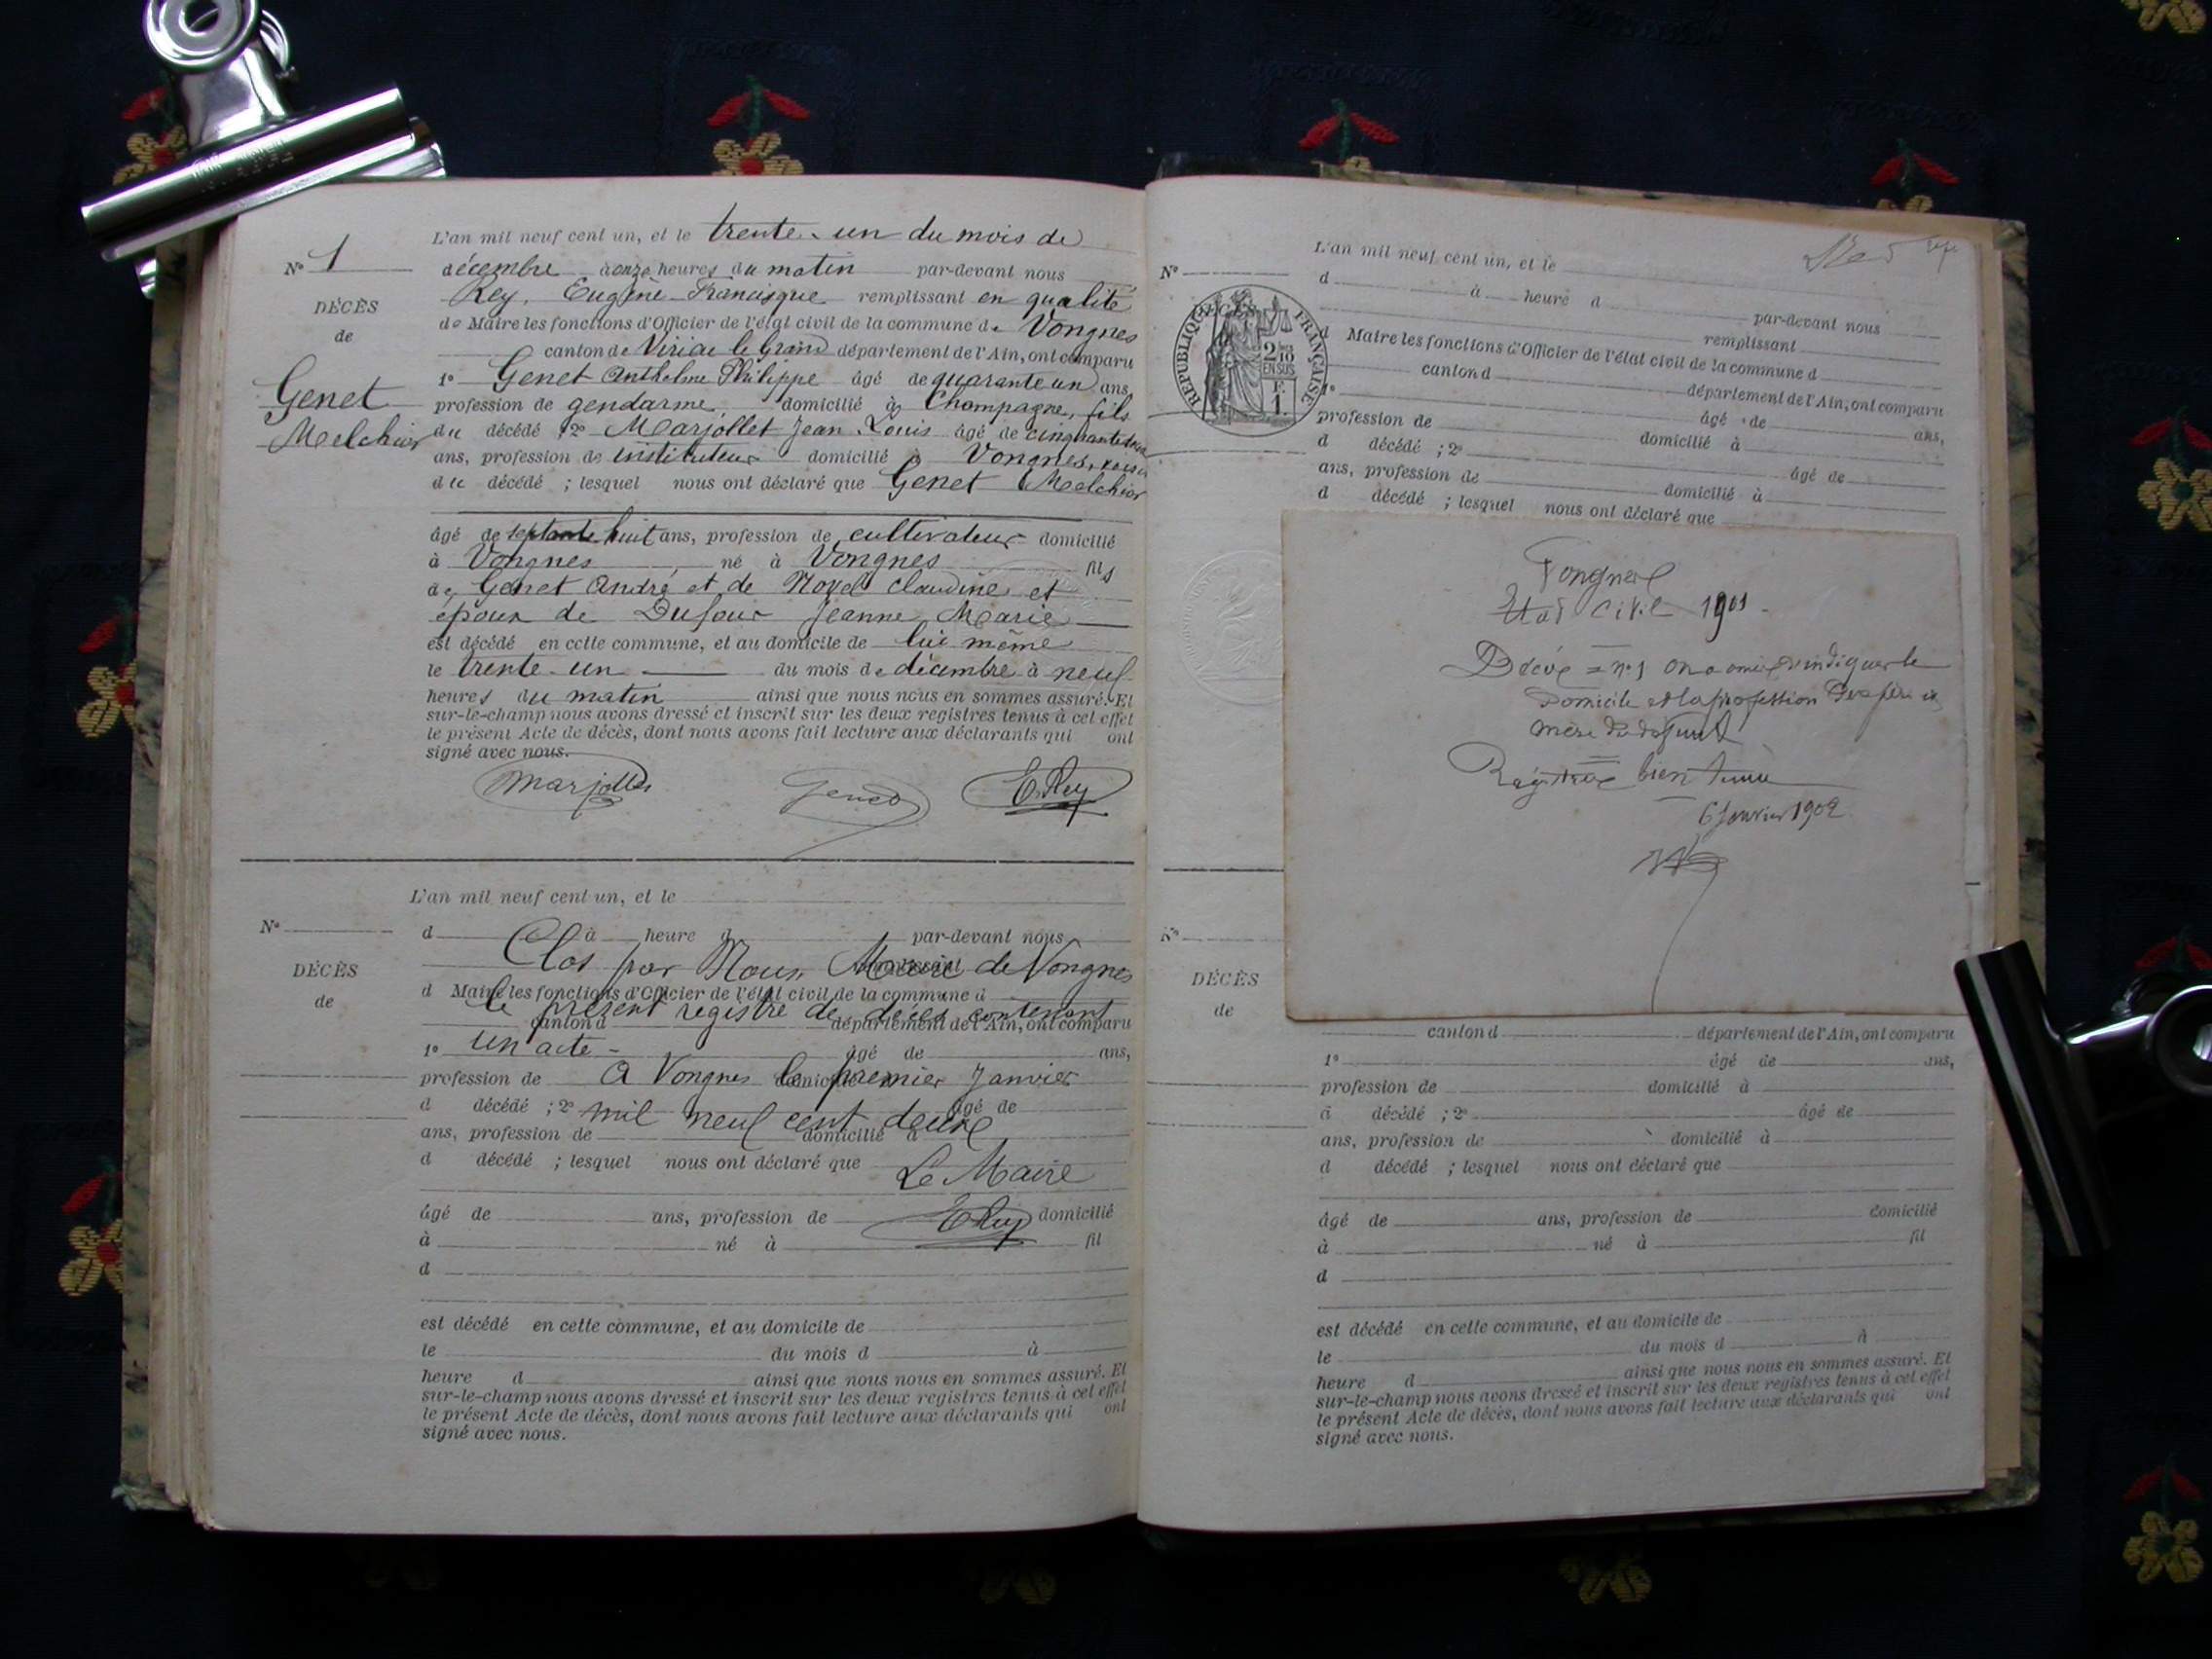 L'an mil neuf cent un, et le trente-un du mois de
N° 1
décembre à onze heures du matin par-devant nous
Rey, Eugène Francisque remplissant en qualité
DÉCÈS
de Maire les fonctions d'Officier de l'état civil de la commune de Vongnes
de
canton de Virieu le Grand département de l'Ain, ont comparu
1° Genet Anthelme Philippe âgé de quarante un ans,
Genet
profession de gendarme domicilié à Champagne, fils
Melchior
du décédé ; 2° Marjollet Jean Louis âgé de cinquante
ans, profession de instituteur domicilié à Vongnes, voisin
du décédé ; lesquel nous ont déclaré que Genet Melchior
âgé de septante huit ans, profession de cultivateur domicilié
à Vongnes, né à Vongnes fils
de Genet André et de Novel Claudine et
époux de Dufour Jeanne Marie
est décédé en cette commune, et au domicile de lui même
le trente-un du mois de décembre à neuf
heures du matin ainsi que nous nous en sommes assuré. Et
sur-le-champ nous avons dressé et inscrit sur les deux registres tenus à cet effet
le présent Acte de décès, dont nous avons fait lecture aux déclarants qui ont
signé avec nous.
Marjollet Genet E. Rey
L'an mil neuf cent un, et le
N°
d à heure d par-devant nous
Clos par Nous Maire de Vongnes
remplissant
DÉCÈS
d Maire les fonctions d'Officier de l'état civil de la commune d
de
le présent registre de décès contenant
canton d département de l'Ain, ont comparu
un acte -
1° âgé de ans,
A Vongnes le premier Janvier
profession de domicilié à
d décédé ; 2° âgé de
mil neuf cent deux
ans, profession de domicilié à
d décédé ; lesquel nous ont déclaré que
Le Maire
âgé de ans, profession de domicilié
E. Rey
à né à fil
d
est décédé en cette commune, et au domicile de
le du mois d à
heure d ainsi que nous nous en sommes assuré. Et
sur-le-champ nous avons dressé et inscrit sur les deux registres tenus à cet effet
le présent Acte de décès, dont nous avons fait lecture aux déclarants qui ont
signé avec nous.
L'an mil neuf cent un, et le
N°
d à heure d
par-devant nous
remplissant
d Maire les fonctions d'Officier de l'état civil de la commune d
canton d
département de l'Ain, ont comparu
1° âgé de ans,
profession de domicilié à
d décédé ; 2° âgé de
ans, profession de domicilié à
d décédé ; lesquel nous ont déclaré que
RÉPUBLIQUE FRANÇAISE
2/10
EN SUS
F.
1.
Vongnes
Etat Civil 1901
Décès = n° 1 on a omis d'indiquer le
domicile et la profession des père et
mère du défunt
Registre bien tenu
6 Janvier 1902
N°
DÉCÈS
de
canton d département de l'Ain, ont comparu
1° âgé de ans,
profession de domicilié à
d décédé ; 2° âgé de
ans, profession de domicilié à
d décédé ; lesquel nous ont déclaré que
âgé de ans, profession de domicilié
à né à fil
d
est décédé en cette commune, et au domicile de
le du mois d à
heure d ainsi que nous nous en sommes assuré. Et
sur-le-champ nous avons dressé et inscrit sur les deux registres tenus à cet effet
le présent Acte de décès, dont nous avons fait lecture aux déclarants qui ont
signé avec nous.